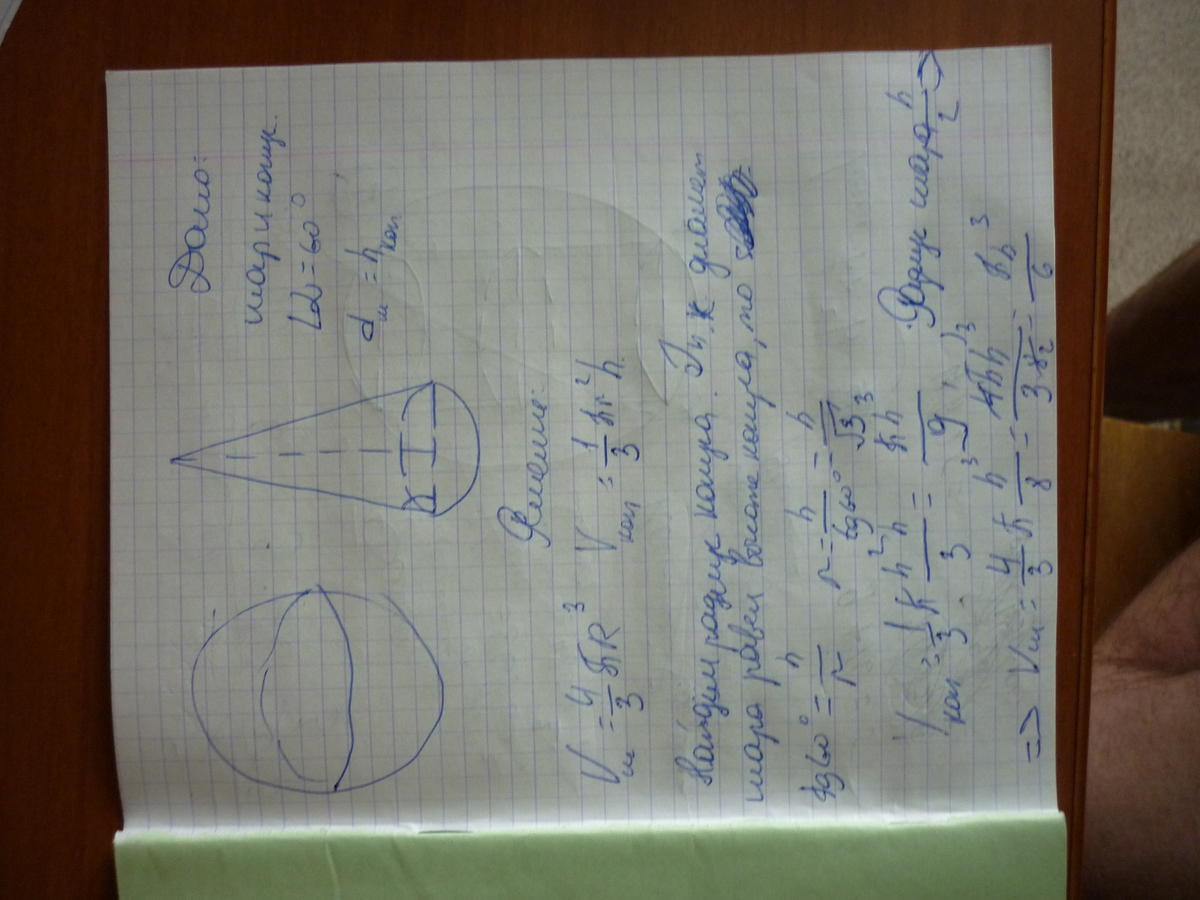 Дано:
шар и конус.
∠α = 60°
d ш = h кон
α
Решение:
V ш = 4/3 πR³ V кон = 1/3 πr²h
Найдём радиус конуса. Т. к диамет
шара равен высоте конуса, то
tg60° = h/r r = h/tg60° = h/√3
V кон = 1/3 π h²h/3 = πh³/9, Радиус шара h/2 ⇒
⇒ V ш = 4/3 π h³/8 = 4πh³/3·8₂ = πh³/6